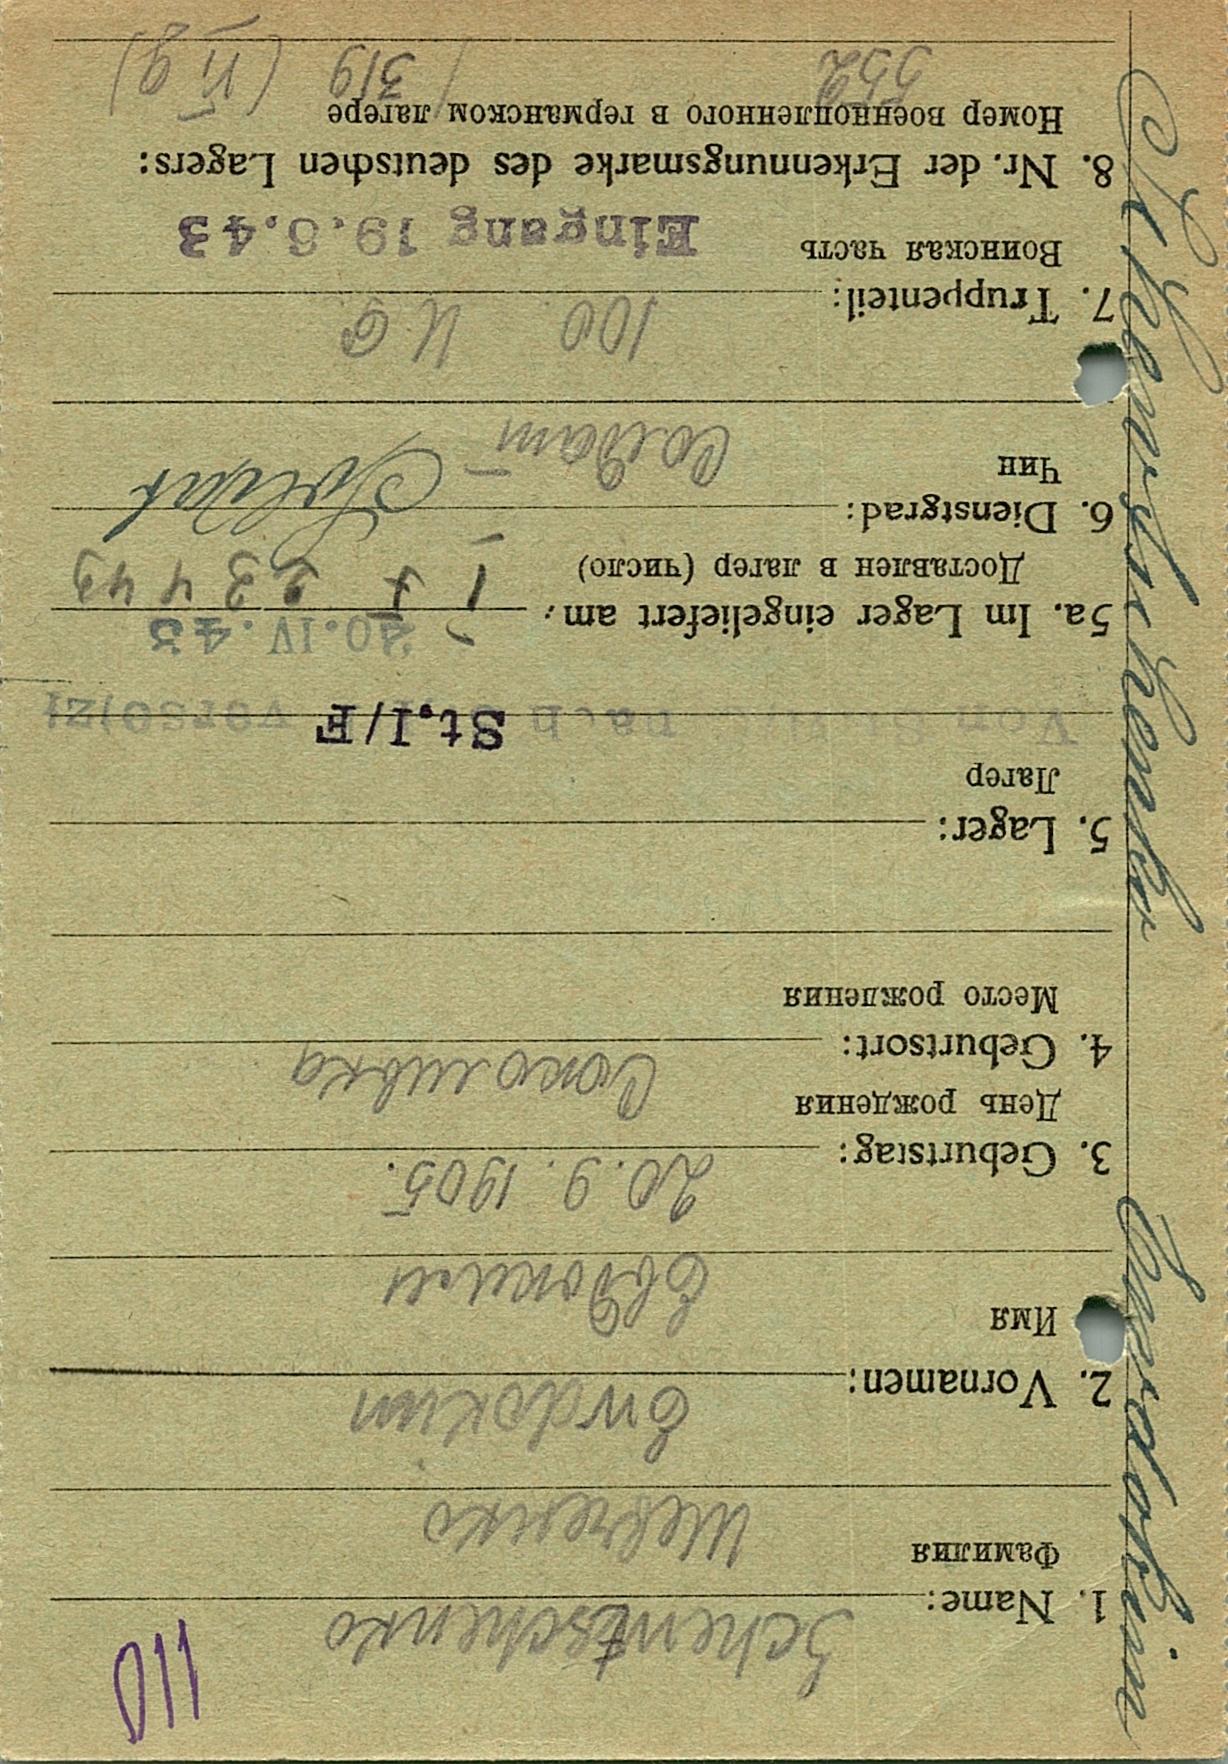 110
Schewtschenko
1. Name:
Фамилия
Шевченко
Ewdokim
2. Vornamen:
Имя
Евдоким
20. 9. 1905.
3. Geburtstag:
День рождения
Соколивка
4. Geburtsort:
Место рождения
5. Lager:
Лагер
St.I/F
Von nach verso)zt
20.IV.43
5a. Im Lager eingeliefert am:
Доставлен в лагер (число)
6. Dienstgrad: Soldat
Чин
Солдат
100
7. Truppenteil:
Воинская часть
Eingang 19.6.43
8. Nr. der Erkennungsmarke des deutschen Lagers:
Номер военнопленного в германском лагере
552 / 319 (VI g)
Schewtschenko Ewdokim